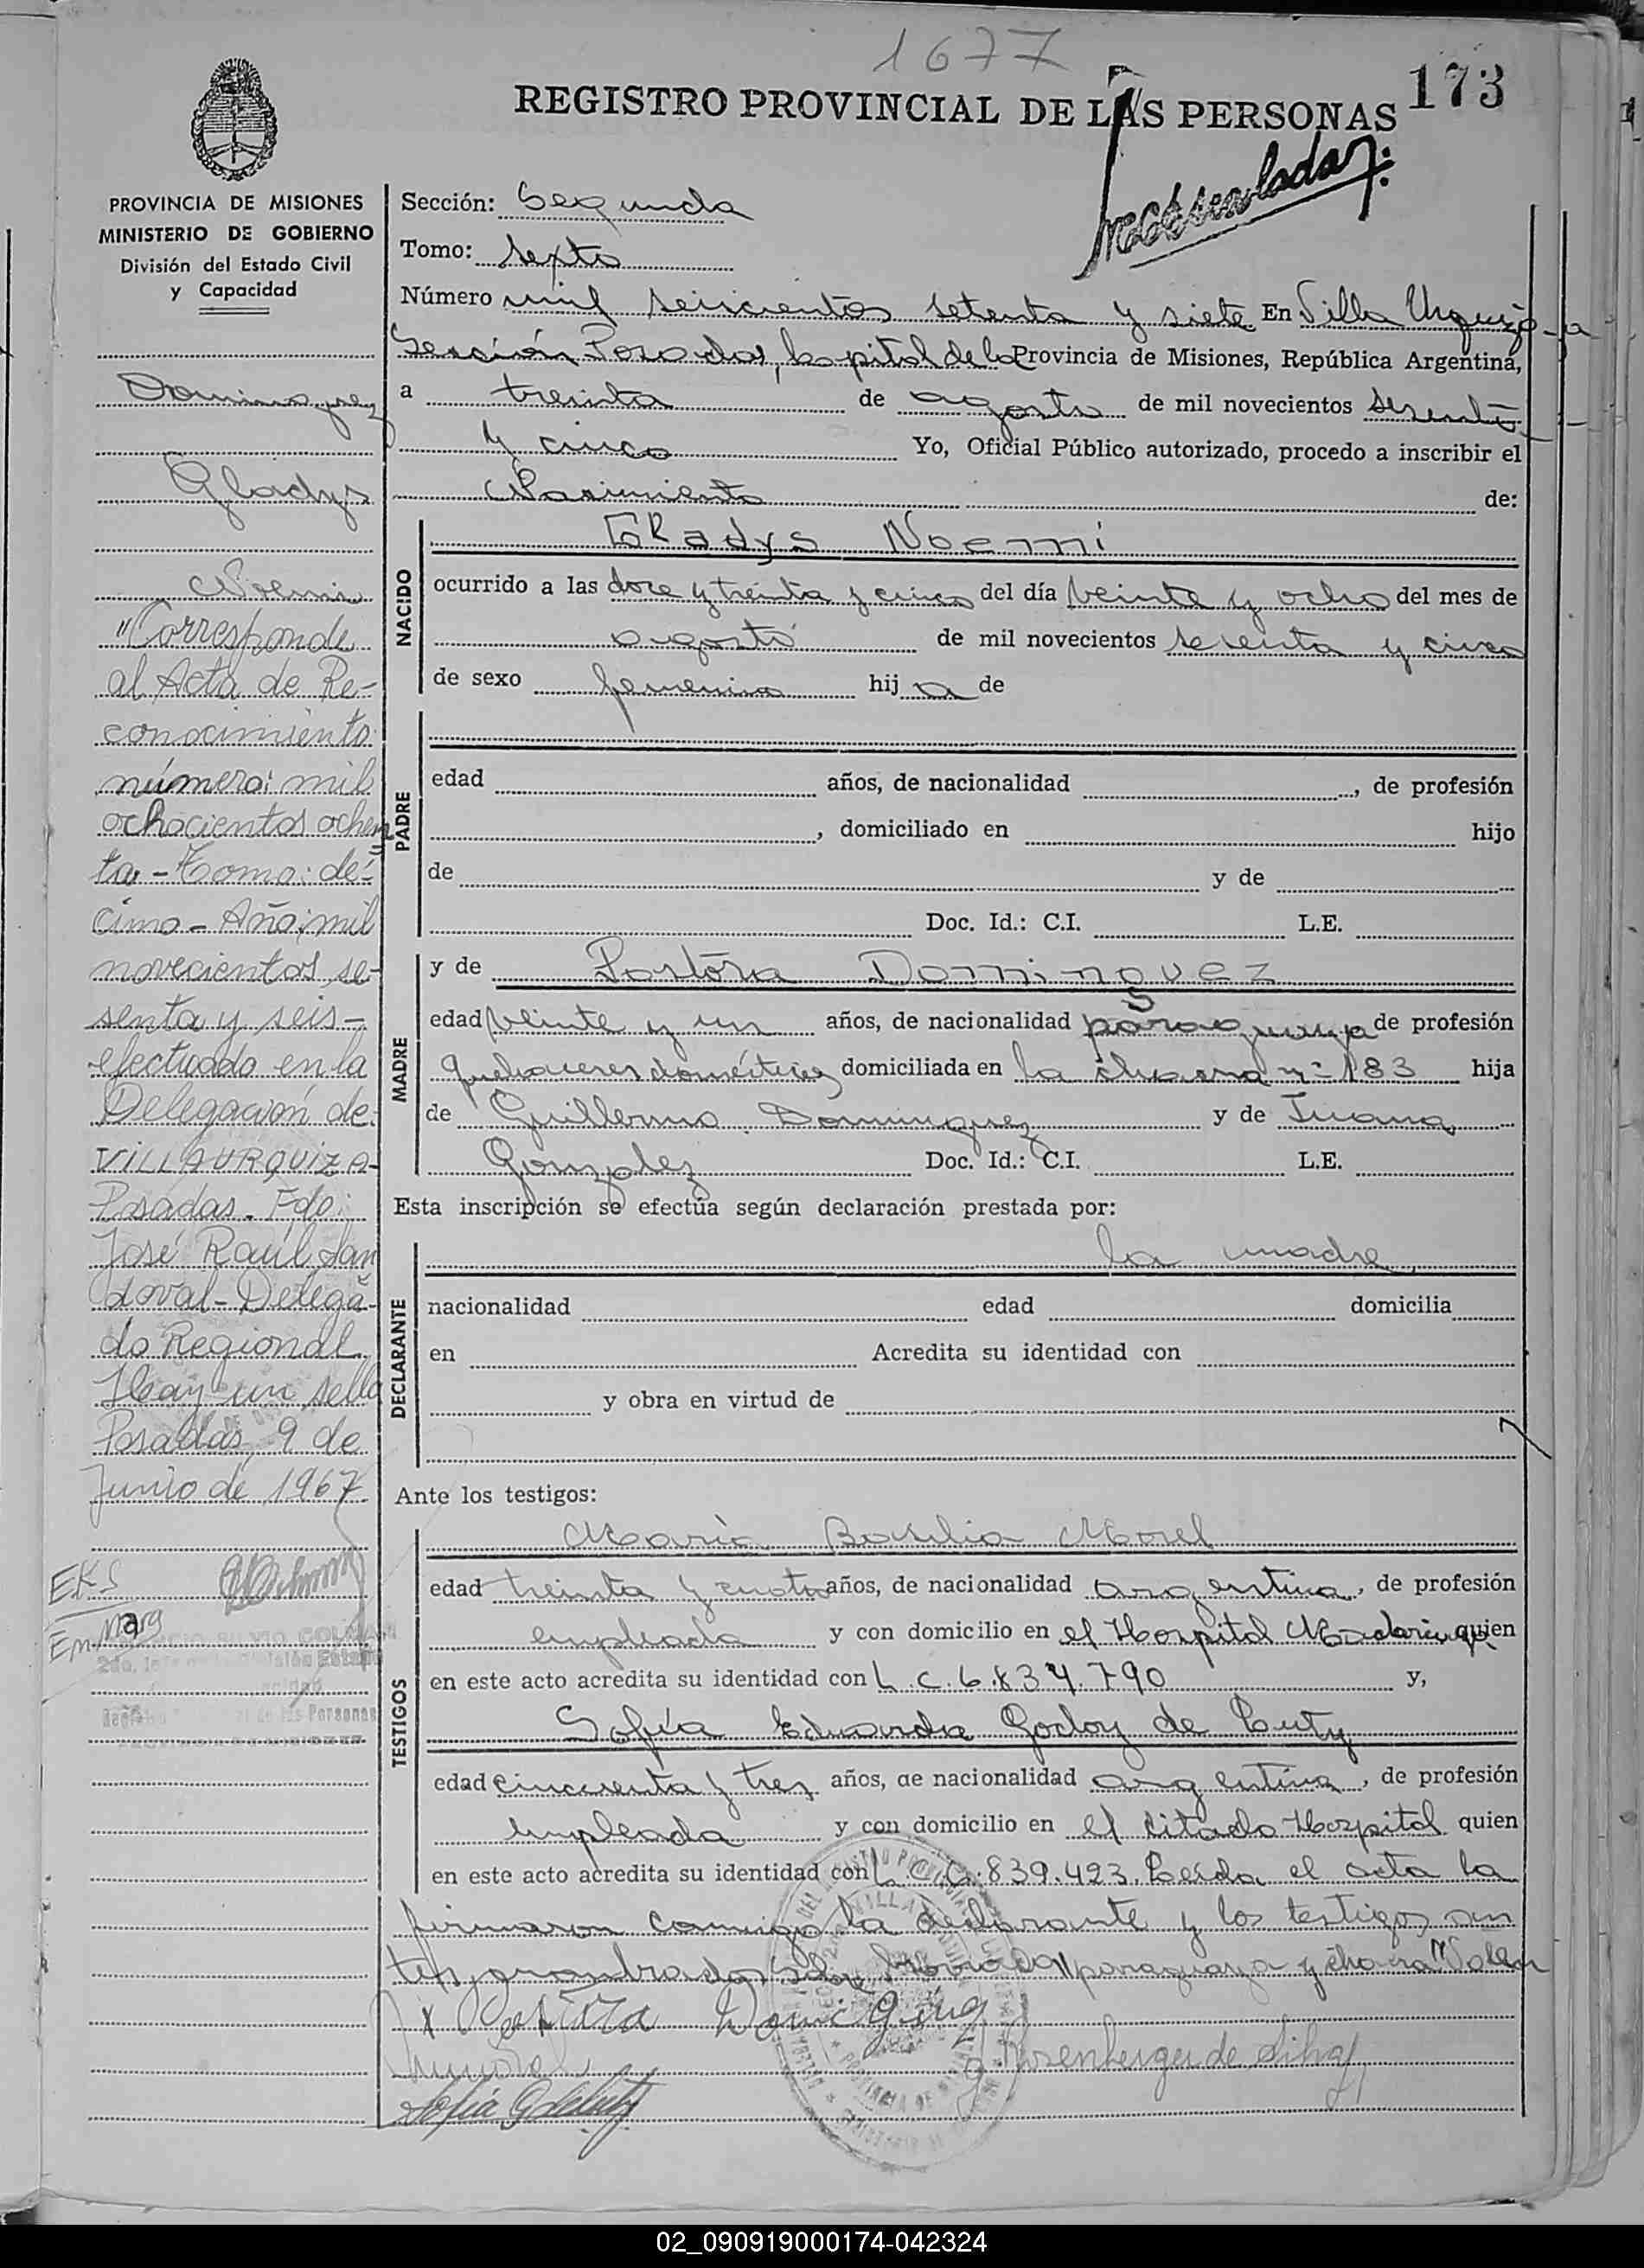 1677
173
REGISTRO PROVINCIAL DE LAS PERSONAS
PROVINCIA DE MISIONES
MINISTERIO DE GOBIERNO
División del Estado Civil
y Capacidad
Dominguez
Gladys
Noemi
"Corresponde
al Acta de Re-
conocimiento
número: mil
ochocientos ochen
ta - Tomo: dé-
cimo - Año: mil
novecientos se-
senta y seis -
efectuado en la
Delegación de
VILLA URQUIZA -
Posadas. Fdo:
José Raúl San
doval - Delega-
do Regional
Hay un sello
Posadas, 9 de
Junio de 1967
EKS
Em. Marg
Sección: Segunda
Tomo: Sexto
Número mil seiscientos setenta y siete En Villa Urquiza
Sección Posadas, Capital de la Provincia de Misiones, República Argentina,
a treinta de agosto de mil novecientos sesenta
y cinco Yo, Oficial Público autorizado, procedo a inscribir el
Nacimiento de:
NACIDO
Gladys Noemi
ocurrido a las doce y treinta y cinco del día veinte y ocho del mes de
agosto de mil novecientos sesenta y cinco
de sexo femenino hija de
PADRE
edad años, de nacionalidad , de profesión
, domiciliado en hijo
de y de
Doc. Id.: C.I. L.E.
MADRE
y de Pastora Dominguez
edad veinte y un años, de nacionalidad paraguaya de profesión
quehaceres domésticos domiciliada en la chacra nº 183 hija
de Guillermo Dominguez y de Juana
Gonzalez Doc. Id.: C.I. L.E.
Esta inscripción se efectúa según declaración prestada por:
DECLARANTE
la madre
nacionalidad edad domicilia
en Acredita su identidad con
y obra en virtud de
Ante los testigos:
TESTIGOS
María Basilia Morel
edad treinta y cuatro años, de nacionalidad argentina, de profesión
empleada y con domicilio en el Hospital Madariaga quien
en este acto acredita su identidad con L.C. 6.834.790 y,
Sofía Eduarda Godoy de Cuty
edad cincuenta y tres años, de nacionalidad argentina, de profesión
empleada y con domicilio en el citado Hospital quien
en este acto acredita su identidad con L.C. 839.423. Leída el acta la
firmaron conmigo la declarante y los testigos an
tes nombrados Sobre paraguaya y chacra "Valen
Sofia G de Cuty
02_090919000174-042324